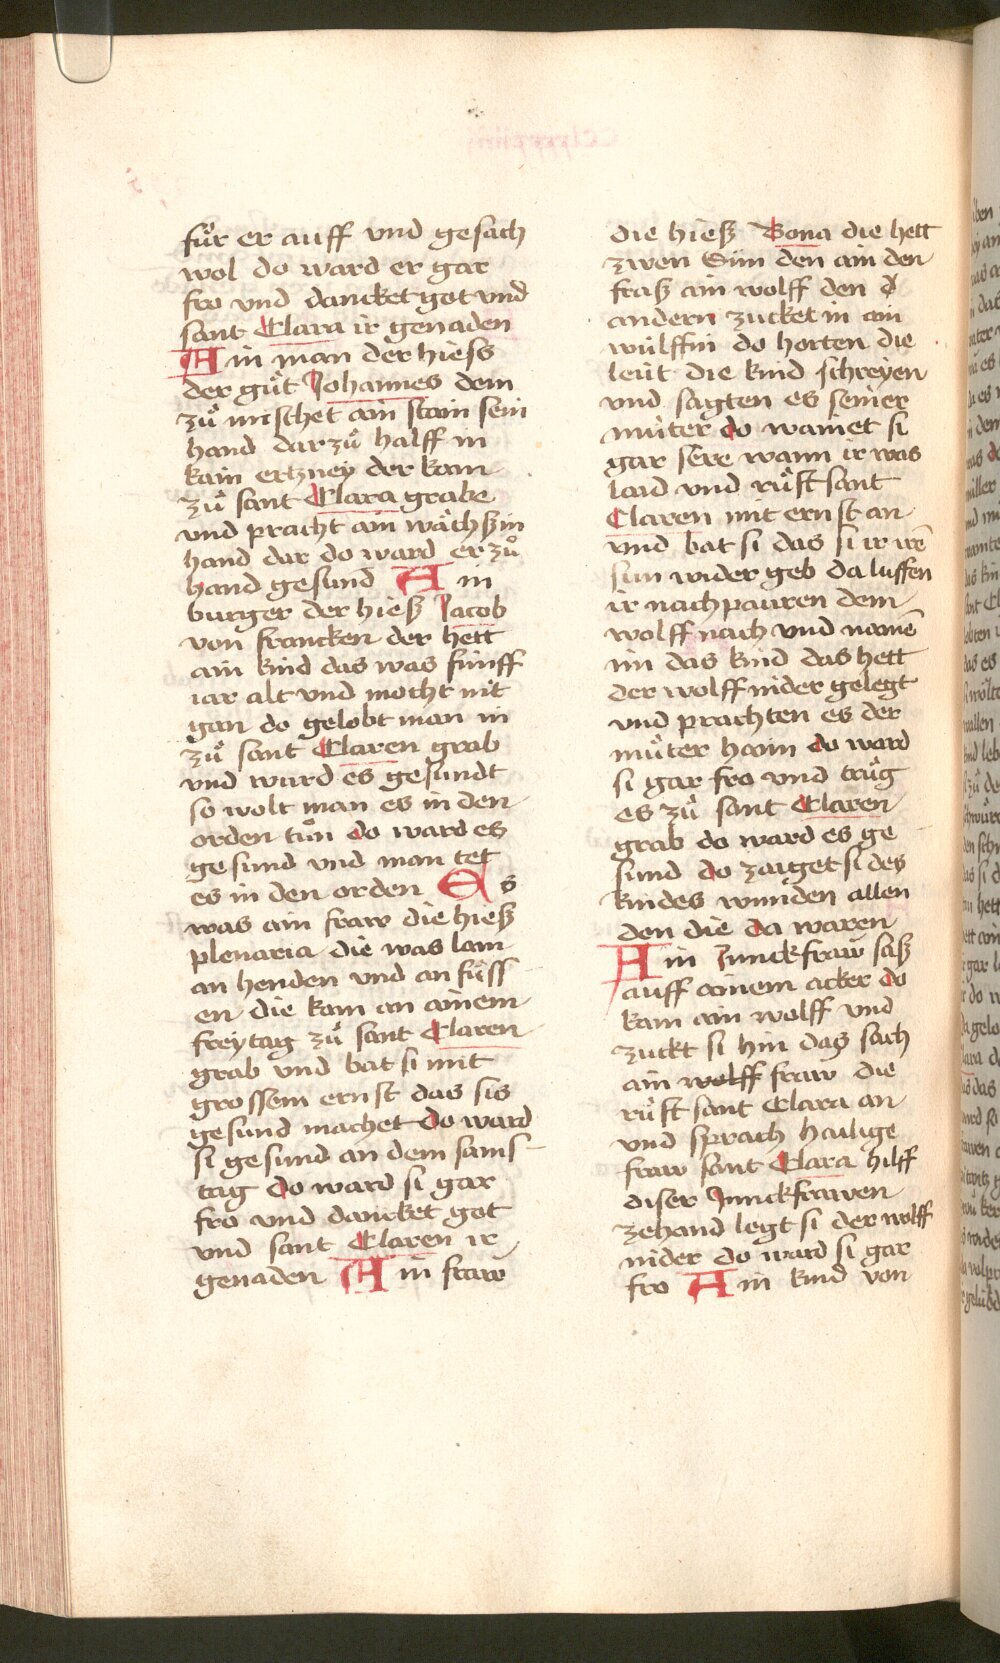 fuͦr er auff vnd gesach
wol do ward er gar
fro vnd dancket got vnd
sant Clara ir genaden
Ain man der hiess
der guͦt Johannes dem
zuͦ mischet ain stain sein
hand dar zuͦ halff in
kain ertzney der kam
zuͦ sant Clara grabe
vnd pracht ain wächszin
hand dar do ward er zuͦ
hand gesund Ain
burger der hiesz Jacob
von francken der hett
ain kind das was fünff
iar alt vnd mocht nit
gan do gelobt man in
zuͦ sant Claren grab
vnd wurd es gesundt
so wolt man es in den
orden tuͦn do ward es
gesund vnd man tet
es in den orden Es
was ain fraw die hiesz
plenaria die was lam
an henden vnd an füss
en die kam an ainem
freytag zuͦ sant Claren
grab vnd bat si mit
grossem ernst das sis
gesund machet do ward
si gesund an dem sams-
tag do ward si gar
fro vnd dancket got
vnd sant Claren ir
genaden Ain fraw
die hiesz Bona die hett
zwen Sün den ain den
frasz ain wolff den d
andern zucket in ain
wülffin do horten die
leüt die kind schreyen
vnd sagten es seiner
muͦter do wainet si
gar sere wann ir was
laid vnd ruͦft sant
Claren mit ernst an
vnd bat si das si ir irē
sun wider geb da luffen
ir nachpauren dem
wolff nach vnd namē
im das kind das hett
der wolff nider gelegt
vnd prachten es der
muͦter haim do ward
si gar fro vnd truͦg
es zuͦ sant Claren
grab do ward es ge
sund do zaiget si des
kindes wunden allen
den die da waren
Ain Junckfraw sasz
auff ainem acker do
kam ain wolff vnd
zuckt si hin das sach
ain wolff fraw die
ruͦft sant Clara an
vnd sprach hailige
fraw sant Clara hilff
diser Junckfrawen
zehand legt si der wolff
nider do ward si gar
fro Ain kind von